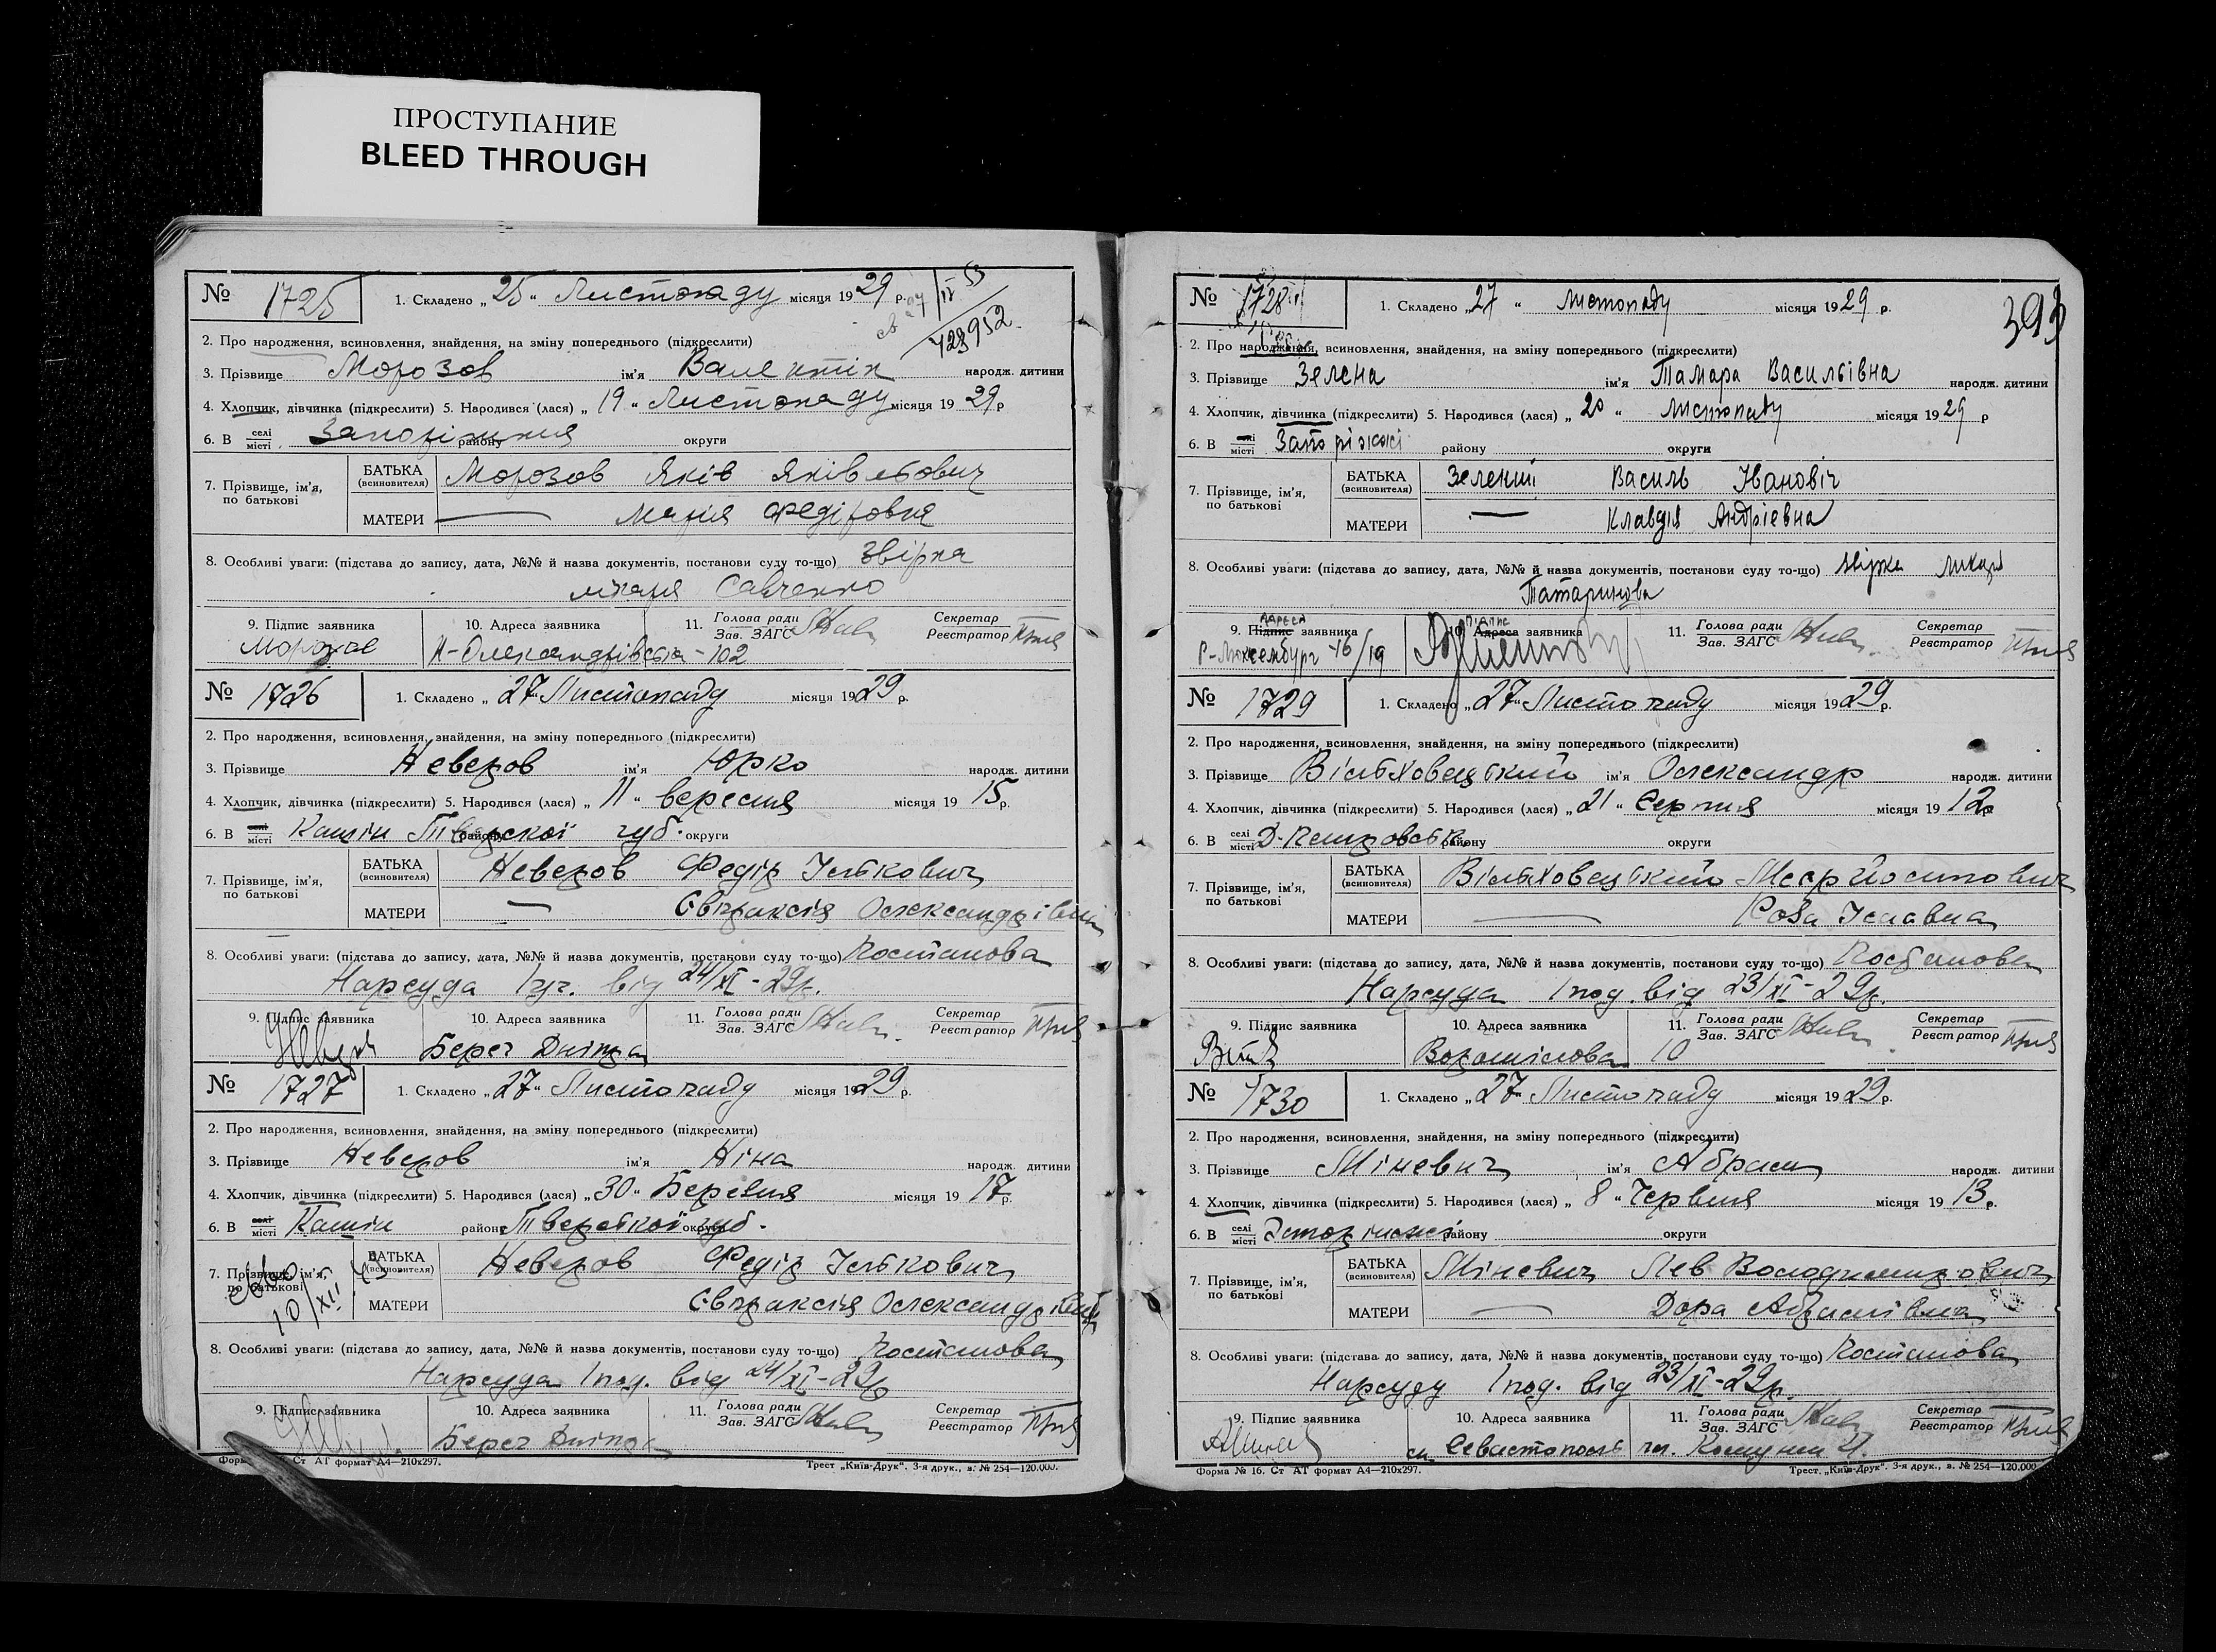 ПРОСТУПАНИЕ
BLEED THROUGH
№ 1725 1. Складено „ 25 “ Листопаду місяця 1929 р.
423952
2. Про народження, всиновлення, знайдення, на зміну попереднього (підкреслити)
3. Прізвище Морозов ім'я Валентін народж. дитини
4. Хлопчик, дівчинка (підкреслити) 5. Народився (лася) „ 19 “ Листопаду місяця 1929 р
6. В селі місті Запоріжжя району округи
7. Прізвище, ім'я, по батькові
БАТЬКА (всиновителя) Морозов Яків Яківльович
МАТЕРИ — Марія Федіровна
8. Особливі уваги: (підстава до запису, дата, №№ й назва документів, постанови суду то-що) Звірка
лікаря Савченко
9. Підпис заявника 10. Адреса заявника 11. Голова ради Зав. ЗАГС Секретар Реєстратор
Морозов Н-Олександрівська - 102
№ 1726 1. Складено „ 27 “ Листопаду місяця 1929 р.
2. Про народження, всиновлення, знайдення, на зміну попереднього (підкреслити)
3. Прізвище Неверов ім'я Юрко народж. дитини
4. Хлопчик, дівчинка (підкреслити) 5. Народився (лася) „ 11 “ вересня місяця 1915 р.
6. В селі місті Кашін Тверской губ. району округи
7. Прізвище, ім'я, по батькові
БАТЬКА (всиновителя) Неверов Федір Ількович
МАТЕРИ — Євпраксія Олександрівна
8. Особливі уваги: (підстава до запису, дата, №№ й назва документів, постанови суду то-що) Постанова
Нарсуда 1 уч. від 24/XI-29р.
9. Підпис заявника 10. Адреса заявника 11. Голова ради Зав. ЗАГС Секретар Реєстратор
Берег Дніпра
№ 1727 1. Складено „ 27 “ Листопаду місяця 1929 р.
2. Про народження, всиновлення, знайдення, на зміну попереднього (підкреслити)
3. Прізвище Неверов ім'я Ніна народж. дитини
4. Хлопчик, дівчинка (підкреслити) 5. Народився (лася) „ 30 “ Березня місяця 1917 р.
6. В селі місті Кашін району Тверської губ. округи
7. Прізвище, ім'я, по батькові
10/XII 43
БАТЬКА (всиновителя) Неверов Федір Ількович
МАТЕРИ Євпраксія Олександрівна
8. Особливі уваги: (підстава до запису, дата, №№ й назва документів, постанови суду то-що) Постанова
Нарсуда 1 под. від 24/XI-29р
9. Підпис заявника 10. Адреса заявника 11. Голова ради Зав. ЗАГС Секретар Реєстратор
Берег Дніпра
Форма Ст АТ формат А4—210х297. Трест „Київ-Друк“. 3-я друк., з. № 254—120.000.
393
№ 1728 1. Складено „ 27 “ листопаду місяця 1929 р.
2. Про народження, всиновлення, знайдення, на зміну попереднього (підкреслити)
3. Прізвище Зелена ім'я Тамара Васильівна народж. дитини
4. Хлопчик, дівчинка (підкреслити) 5. Народився (лася) „ 20 “ листопаду місяця 1929 р
6. В селі місті Запоріжжі району округи
7. Прізвище, ім'я, по батькові
БАТЬКА (всиновителя) Зелений Василь Івановіч
МАТЕРИ — Клавдія Андріевна
8. Особливі уваги: (підстава до запису, дата, №№ й назва документів, постанови суду то-що) звірка лікаря
Татаринова
Адреса Підпис
9. Підпис заявника 10. Адреса заявника 11. Голова ради Зав. ЗАГС Секретар Реєстратор
Р-Люксембург 46/19
№ 1729 1. Складено „ 27 “ Листопаду місяця 1929 р.
2. Про народження, всиновлення, знайдення, на зміну попереднього (підкреслити)
3. Прізвище Вільховецький ім'я Олександр народж. дитини
4. Хлопчик, дівчинка (підкреслити) 5. Народився (лася) „ 21 “ Серпня місяця 1912 р
6. В селі місті Д-Петровськ району округи
7. Прізвище, ім'я, по батькові
БАТЬКА (всиновителя) Вільховецький Меєр Йосипович
МАТЕРИ — Роза Ісаавна
8. Особливі уваги: (підстава до запису, дата, №№ й назва документів, постанови суду то-що) Постанова
Нарсуда 1 под. від 23/XI-29р.
9. Підпис заявника 10. Адреса заявника 11. Голова ради Зав. ЗАГС Секретар Реєстратор
Ворошілова 10
№ 1730 1. Складено „ 27 “ Листопаду місяця 1929 р.
2. Про народження, всиновлення, знайдення, на зміну попереднього (підкреслити)
3. Прізвище Міневич ім'я Абрам народж. дитини
4. Хлопчик, дівчинка (підкреслити) 5. Народився (лася) „ 8 “ Червня місяця 1913 р.
6. В селі місті Запоріжжі району округи
7. Прізвище, ім'я, по батькові
БАТЬКА (всиновителя) Міневич Лев Володимирович
МАТЕРИ — Дора Абрамівна
8. Особливі уваги: (підстава до запису, дата, №№ й назва документів, постанови суду то-що) Постанова
Нарсуду 1 под. від 23/XI-29р.
9. Підпис заявника 10. Адреса заявника 11. Голова ради Зав. ЗАГС Секретар Реєстратор
Севастополь Комуни 21.
Форма № 16. Ст АТ формат А4—210х297. Трест „Київ-Друк“. 3-я друк., з. № 254—120.000